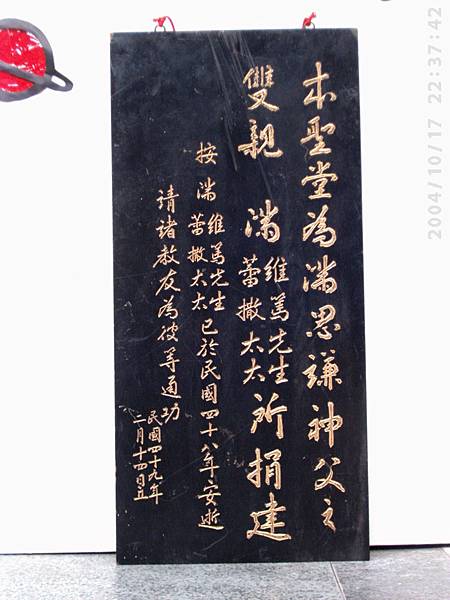 本聖堂為满思謙神父之
雙親 满維篤先生蕾撒太太所捐建
按满維篤先生蕾撒太太已於民國四十八年安逝
請諸教友為彼等通功
民國四十九年
二月十四日立
2004/10/17 22:37:42